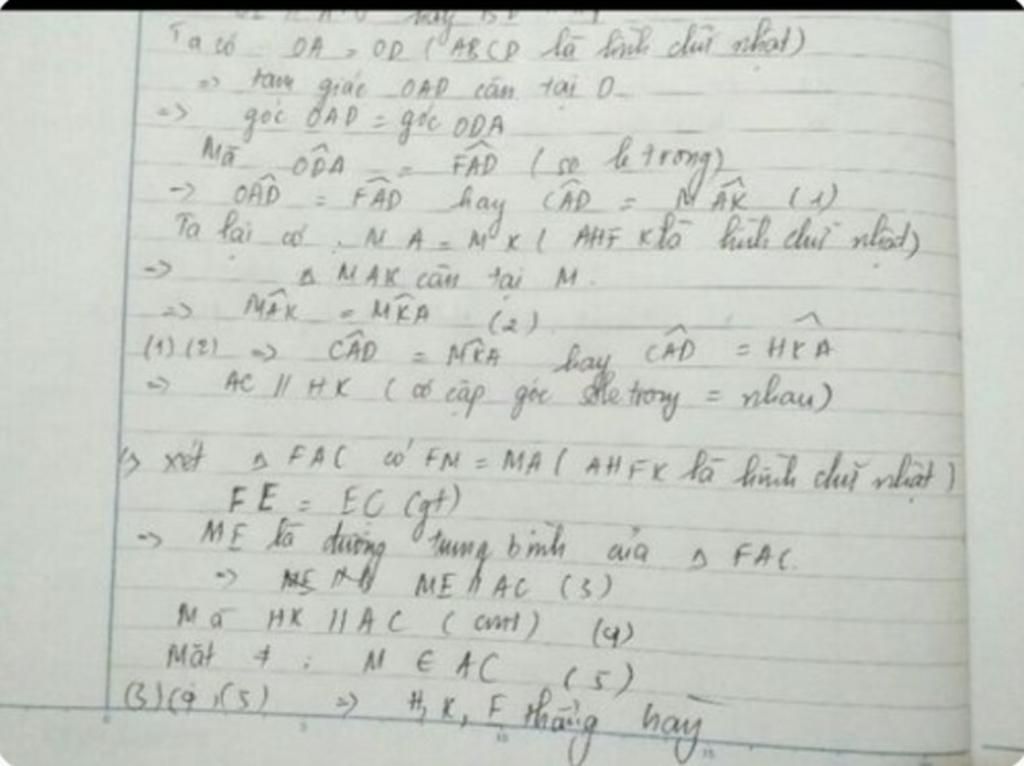 hay
Ta có OA = OD ( ABCD là hình chữ nhật)
=> tam giác OAD cân tại O
=> góc OAD = góc ODA
Mà ODA = FAD ( so le trong)
=> OAD = FAD hay CAD = MAK (1)
Ta lại có MA = MK ( AHFK là hình chữ nhật)
=> Δ MAK cân tại M.
=> MAK = MKA (2)
(1) (2) => CAD = MKA hay CAD = HKA
=> AC // HK ( có cặp góc sole trong = nhau)
xét Δ FAC có FM = MA ( AHFK là hình chữ nhật )
FE = EC (gt)
=> ME là đường trung bình của Δ FAC.
=> ME // AC (3)
Mà HK // AC ( cmt) (4)
Mặt ≠ : M ∈ AC (5)
(3) (4), (5) => H, K, F thẳng hay